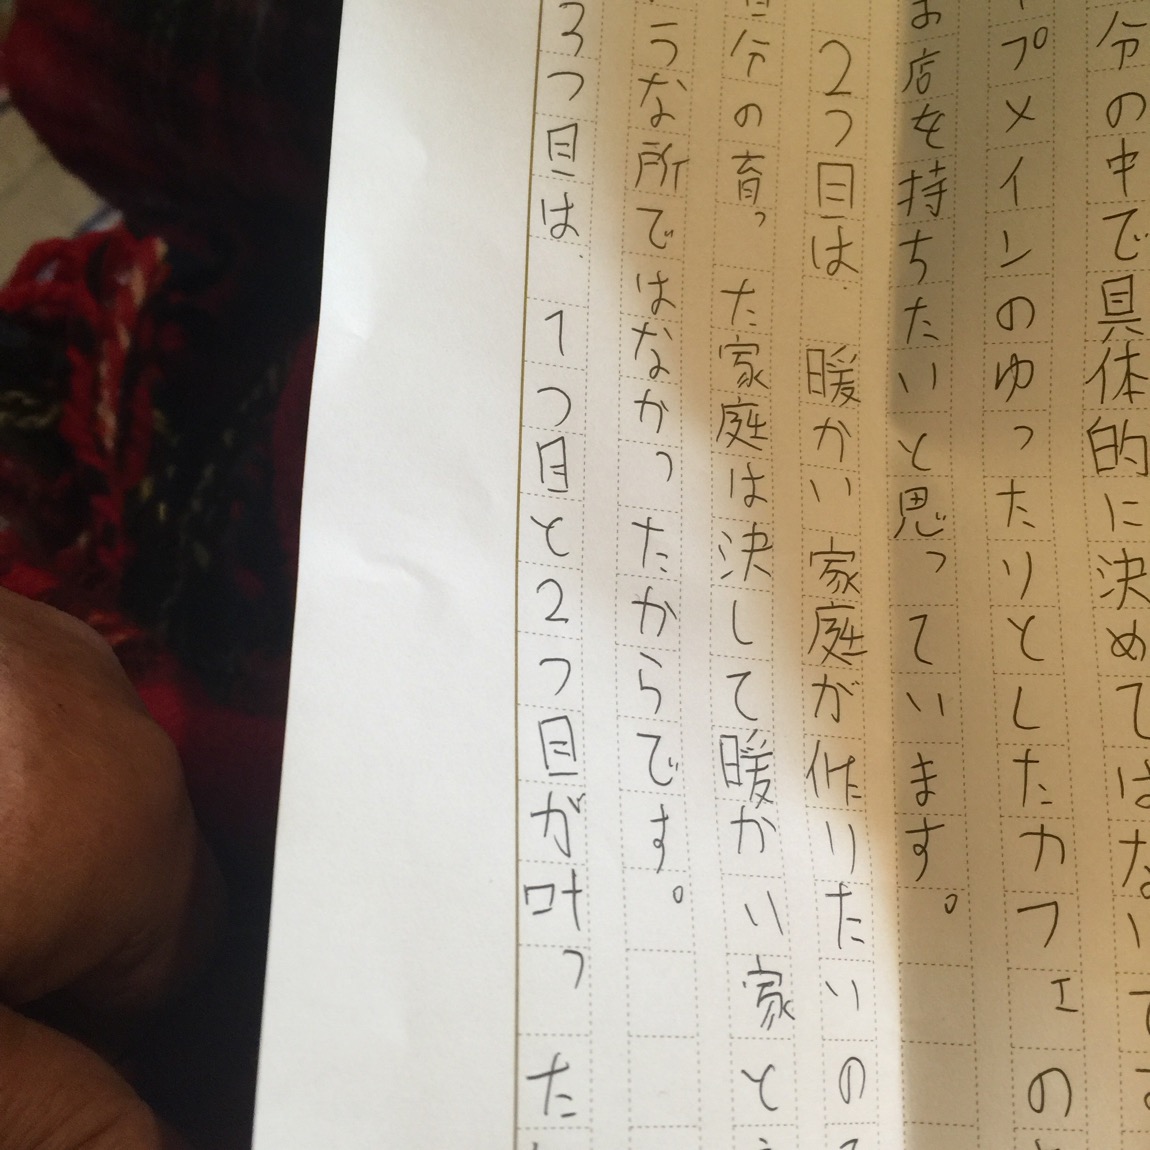 分の中で具体的に決めてはないで
プメインのゆったりとしたカフェの
お店を持ちたいと思っています。
2つ目は、暖かい家庭が作りたいの
自分の育った家庭は決して暖かい家と
うな所ではなかったからです。
3つ目は、1つ目と2つ目が叶った